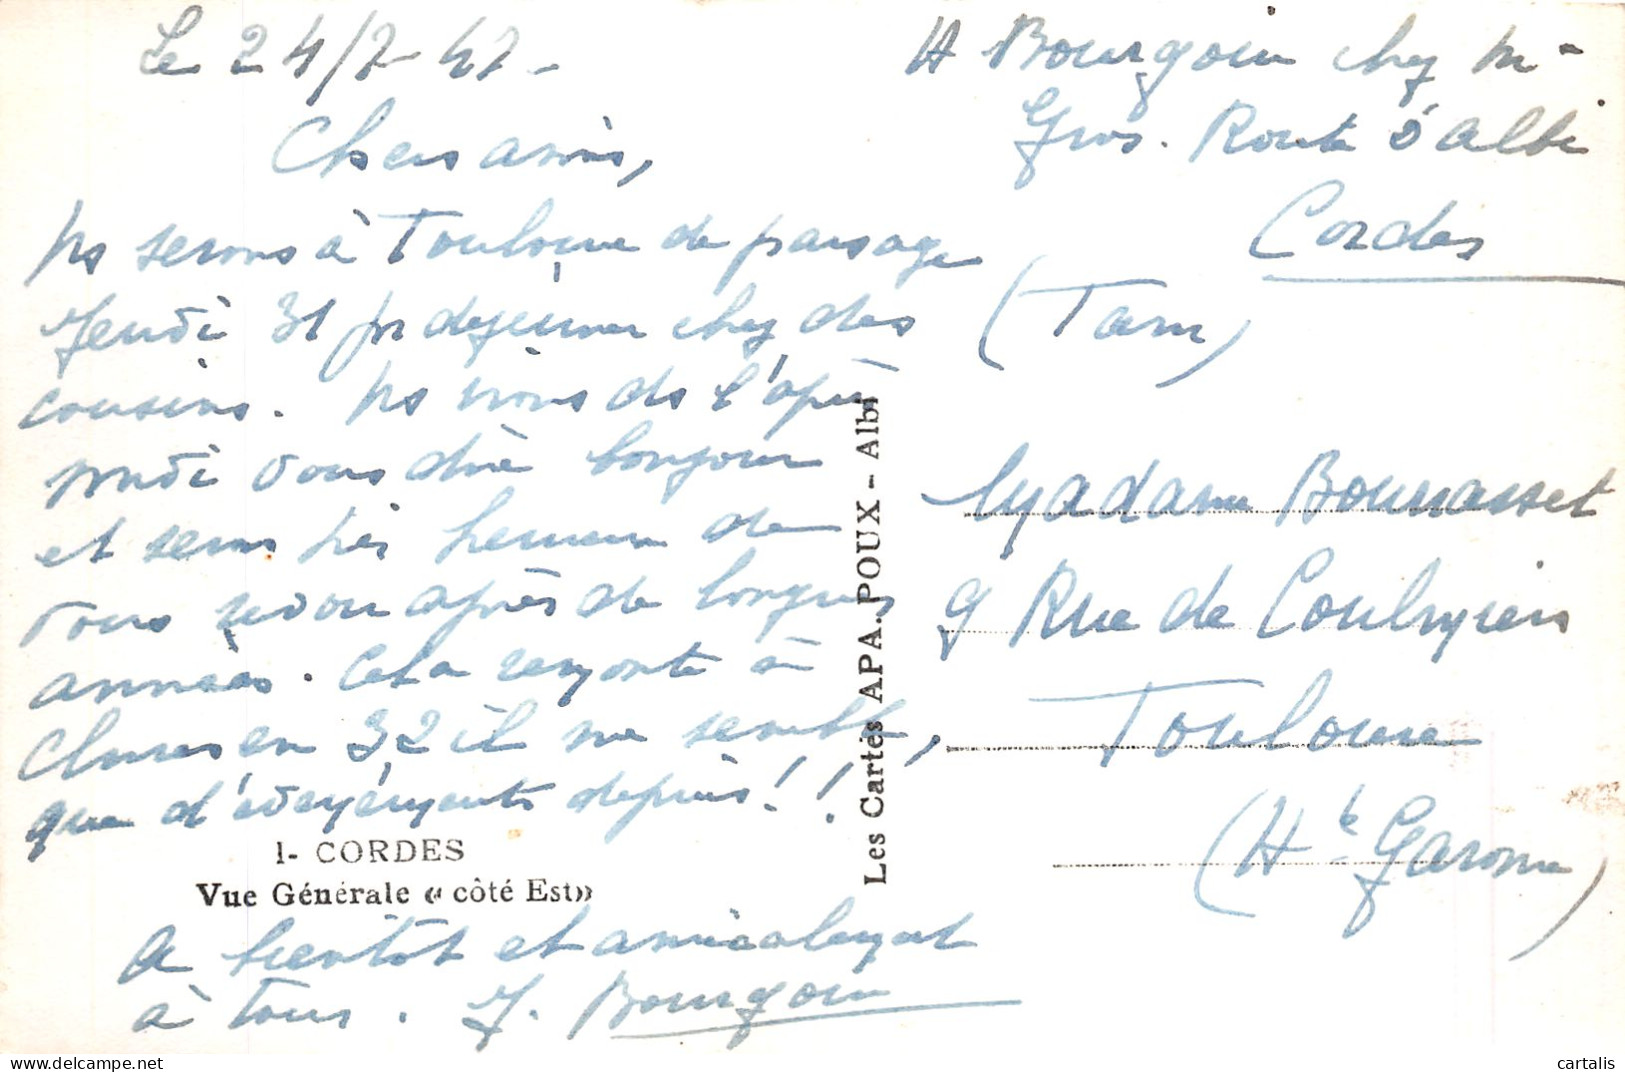 Le 24/7-47-
Chers amis,
Ns serons à Toulouse de passage
Jeudi 31 pr dejeuner chez des
cousins. Ns irons ds l'après
midi vous dire bonjour
et serons très heureux de
vous revoir après de longues
années. Cela remonte à
en 32 il me semble,
que d'évènements depuis!!
1- CORDES
Vue Générale « côté Est»
A bientôt et amicalement
à tous. J. Bourgoin
Les Cartes APA. POUX - Albi
Bourgoin chez Mr
Gros. Route d'Albi
Cordes
(Tarn)
Madame Bourrasset
9 Rue de
Toulouse
(Hte Garonne)
cartalis